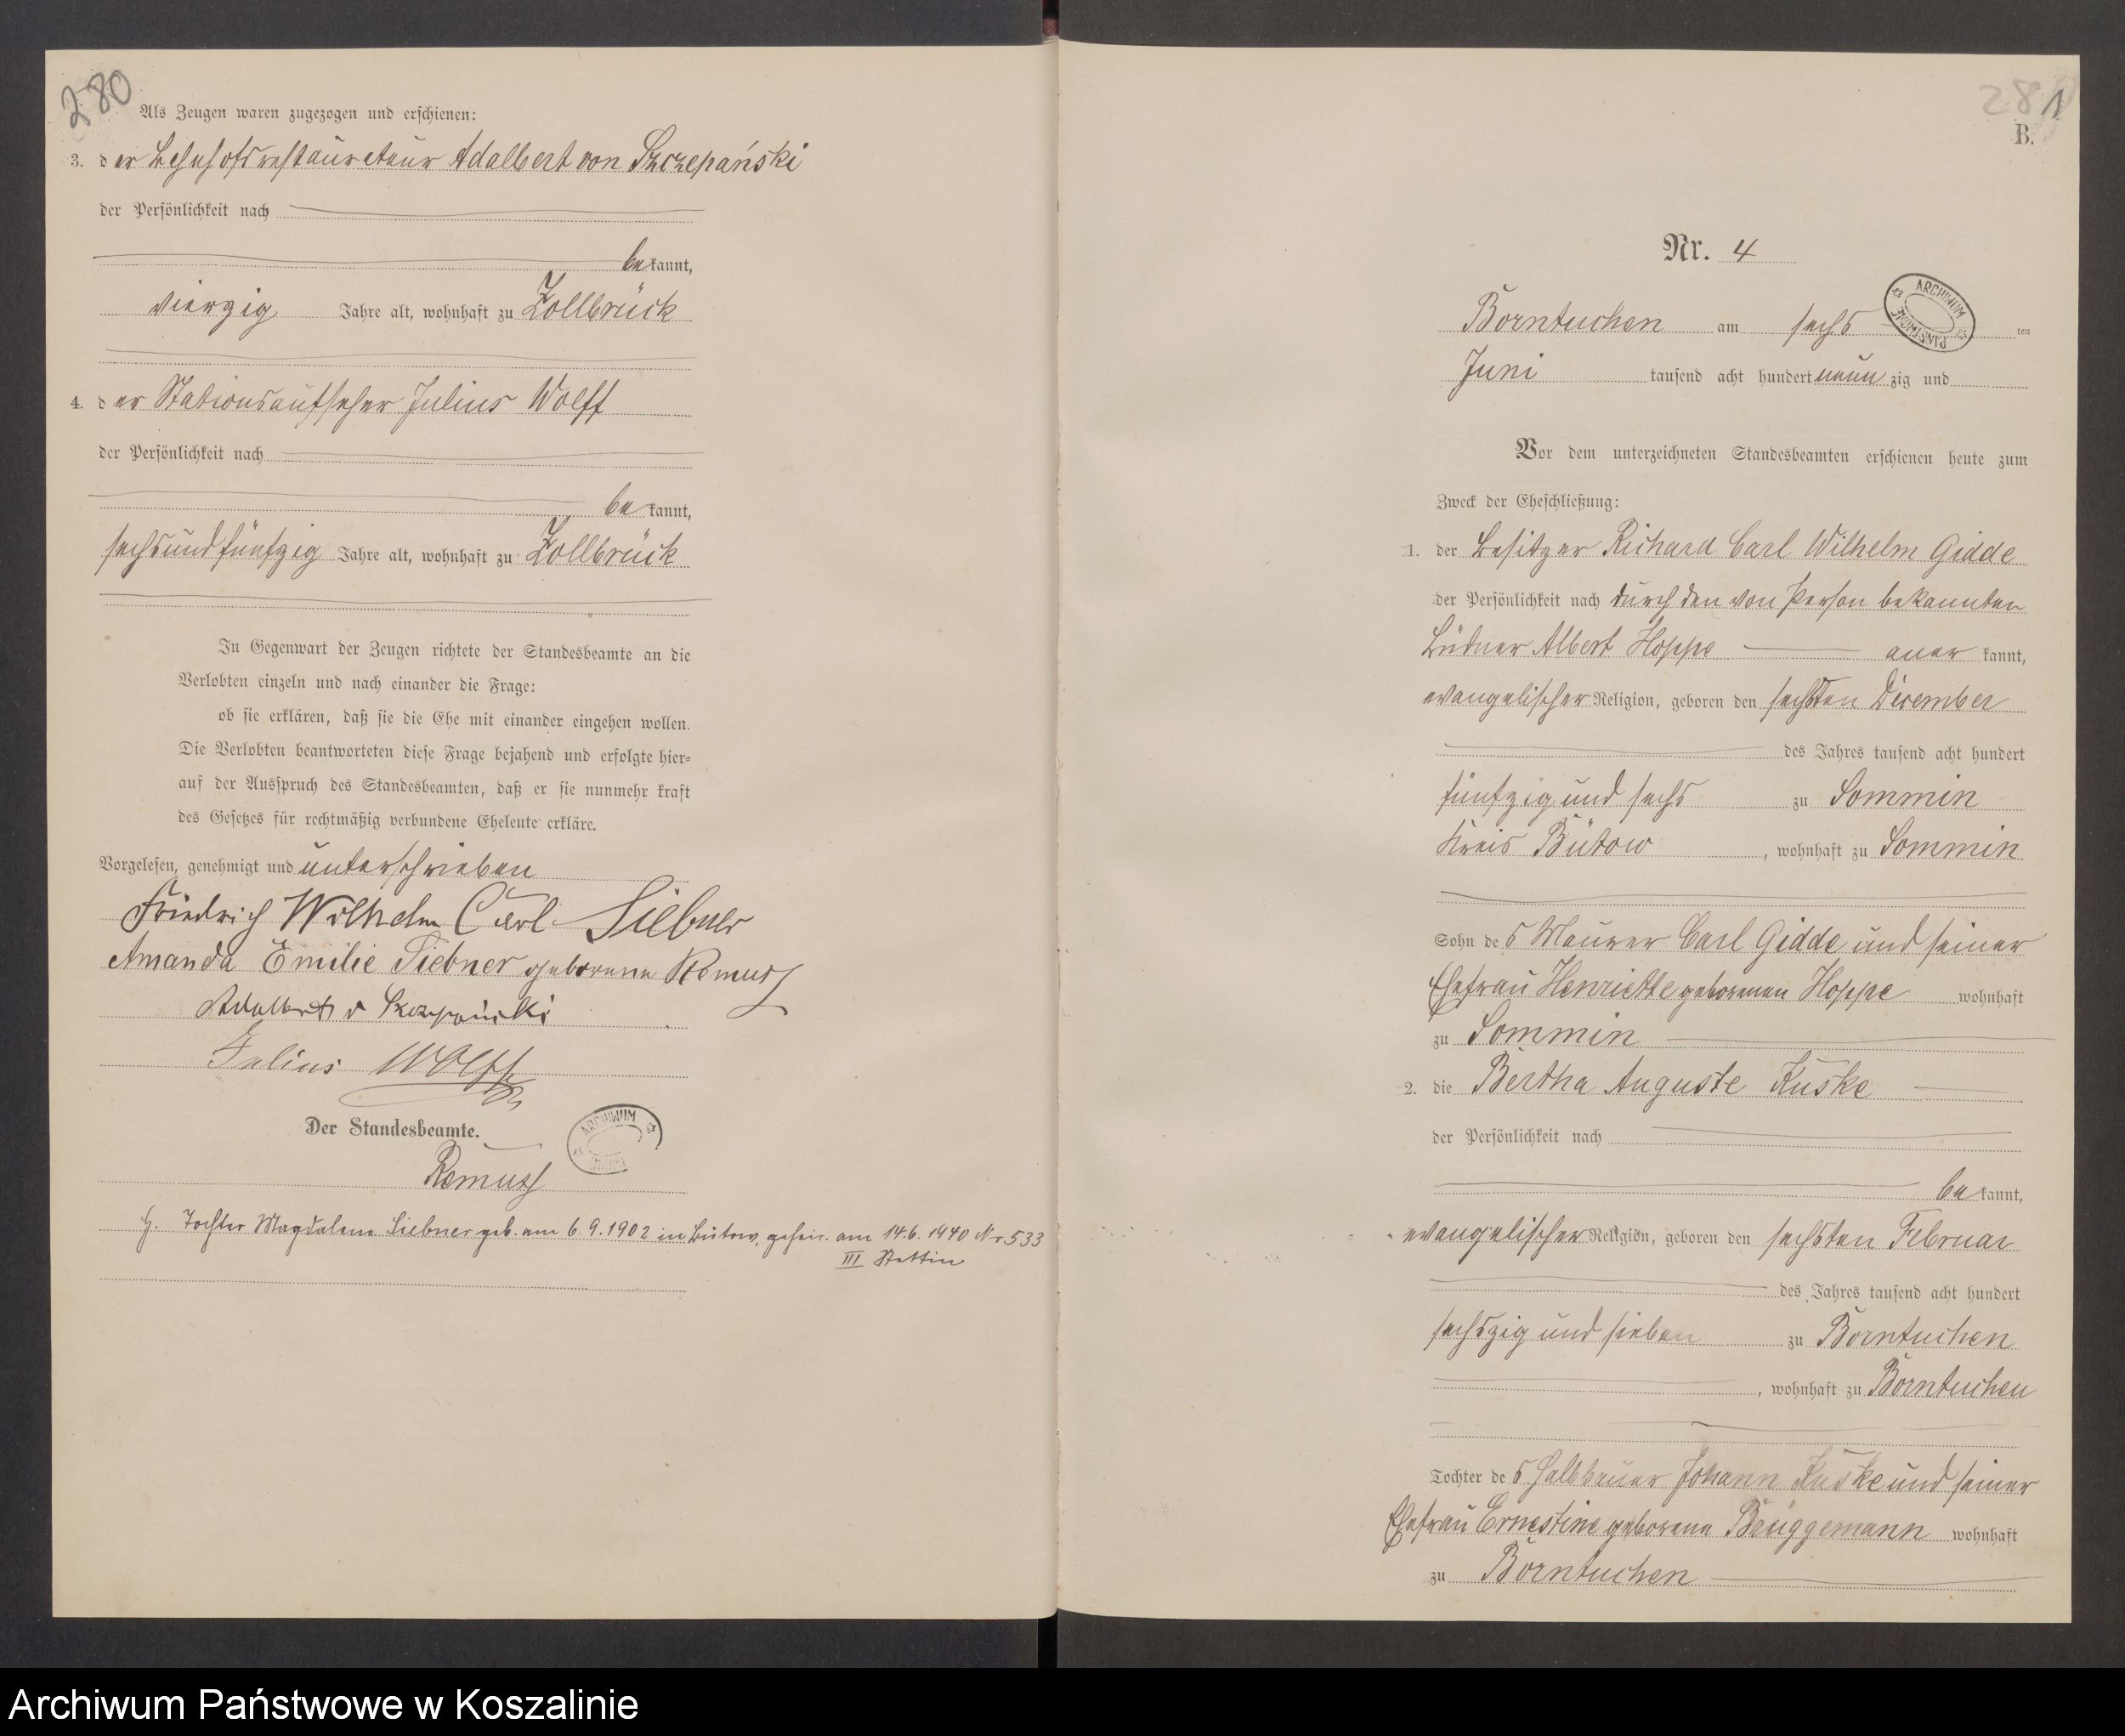 280
Als Zeugen waren zugezogen und erschienen:
3. der Bahnhofsrestaurateur Adalbert von Szczepański
der Persönlichkeit nach
bekannt,
vierzig Jahre alt, wohnhaft zu Zollbrück
4. der Stationsaufseher Julius Wolff
der Persönlichkeit nach
bekannt,
sechsundfünfzig Jahre alt, wohnhaft zu Zollbrück
In Gegenwart der Zeugen richtete der Standesbeamte an die
Verlobten einzeln und nach einander die Frage:
ob sie erklären, daß sie die Ehe mit einander eingehen wollen.
Die Verlobten beantworteten diese Frage bejahend und erfolgte hier-
auf der Ausspruch des Standesbeamten, daß er sie nunmehr kraft
des Gesetzes für rechtmäßig verbundene Eheleute erkläre.
Vorgelesen, genehmigt und unterschrieben
Friedrich Wilhelm Carl Siebner
Amanda Emilie Siebner geborene Remus
Adalbert v Szczepański
Julius Wolff
Der Standesbeamte.
ARCHIWUM
Remus
Tochter Magdalena Siebner geb. am 6.9.1902 in Bütow, geheir. am 14.6.1940 Nr 533
III Stettin
281
B.
Nr. 4
ARCHIWUM PAŃSTWOWE
Borntuchen am sechsten
Juni tausend acht hundert neunzig und
Vor dem unterzeichneten Standesbeamten erschienen heute zum
Zweck der Eheschließung:
1. der Besitzer Richard Carl Wilhelm Gidde
der Persönlichkeit nach durch den von Person bekannten
Büdner Albert Hoppe anerkannt,
evangelischer Religion, geboren den sechsten Dezember
des Jahres tausend acht hundert
fünfzig und sechs zu Sommin
Kreis Bütow, wohnhaft zu Sommin
Sohn des Maurer Carl Gidde und seiner
Ehefrau Henriette geborenen Hoppe wohnhaft
zu Sommin
2. die Bertha Auguste Kuske
der Persönlichkeit nach
bekannt,
evangelischer Religion, geboren den sechsten Februar
des Jahres tausend acht hundert
sechszig und sieben zu Borntuchen
, wohnhaft zu Borntuchen
Tochter des Halbbauer Johann Kuske und seiner
Ehefrau Ernestine geborene Brüggemann wohnhaft
zu Borntuchen
Archiwum Państwowe w Koszalinie